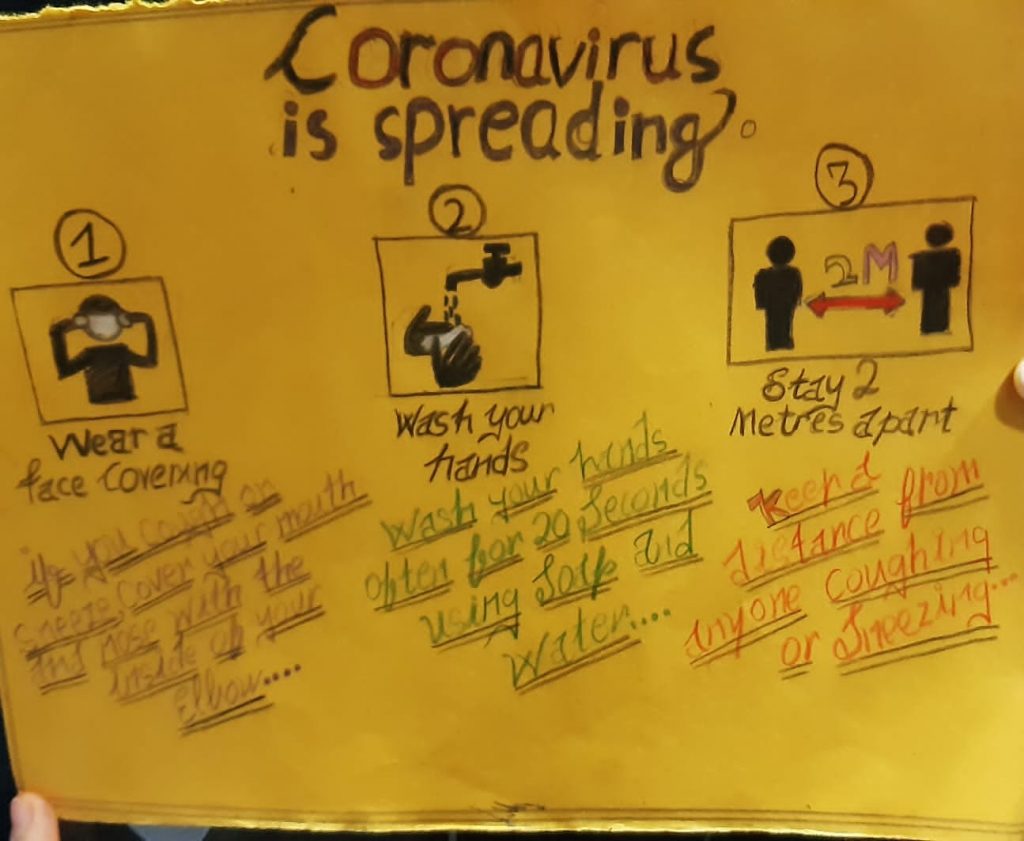 Coronavirus
is spreading.
1
Wear a
face covering
if you cough or
sneeze, cover your mouth
and nose with the
inside of your
elbow....
2
Wash your
hands
Wash your hands
often for 20 seconds
using soap and
water....
3
2M
Stay 2
Metres apart
Keep a
distance from
anyone coughing
or sneezing...